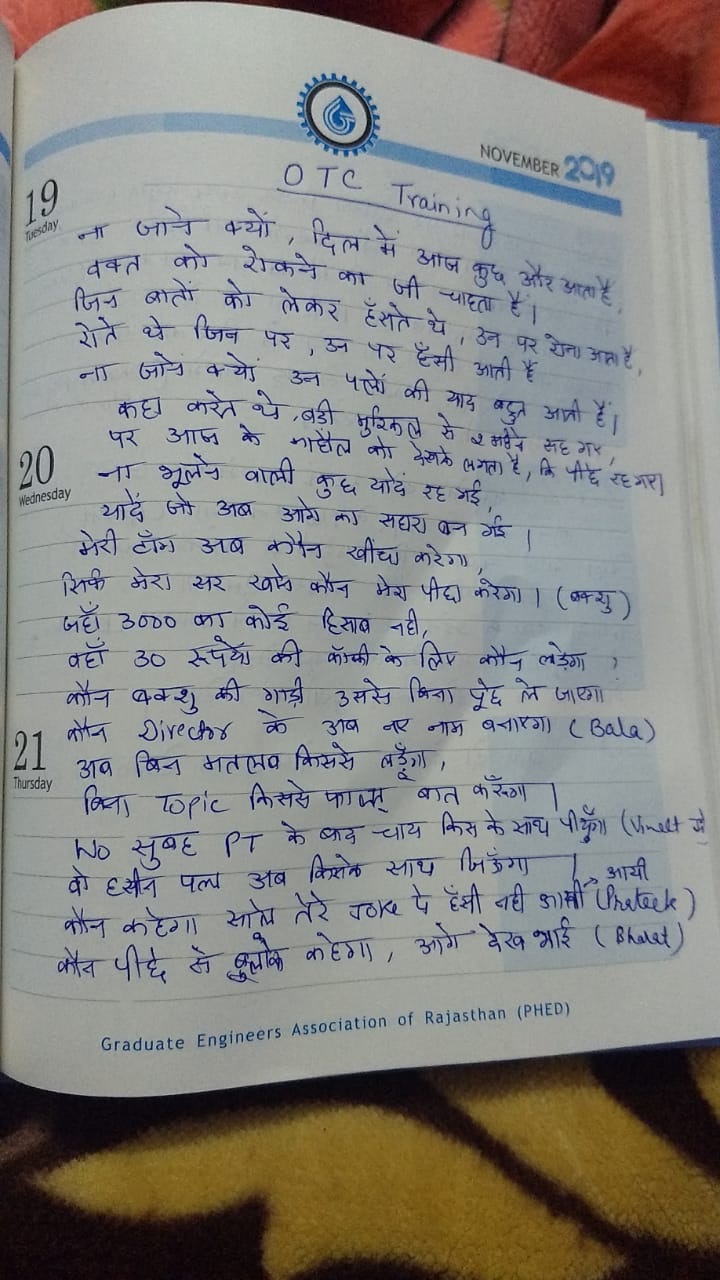 NOVEMBER 2019
OTC Training
19
Tuesday
ना जाने क्यों, दिल में आज कुछ और आता है,
वक्त को रोकने का जी चाहता है।
जिन बातों को लेकर हँसते थे, उन पर रोना आता है,
रोते थे जिन पर, उन पर हँसी आती है
ना जाने क्यों उन पलों की याद बहुत आती है।
कहा करते थे, बडी मुश्किल से 2 महीने सह गए,
पर आज के माहौल को देखके लगता है, कि पीछे रह गए।
20
Wednesday
ना भूलने वाली कुछ यादें रह गई,
यादें जो अब आगे का सहारा बन गई।
मेरी टाँग अब कौन खींचा करेगा,
सिर्फ मेरा सर खाने कौन मेरा पीछा करेगा। (बक्शु)
जहाँ 3000 का कोई हिसाब नही,
वहाँ 30 रूपयों की कॉफी के लिए कौन लड़ेगा,
कौन बक्शु की गाड़ी उससे बिना पूछे ले जाएगा
21
Thursday
कौन Director के अब नए नाम बनाएगा (Bala)
अब बिन मतलब किससे लडूँगा,
बिना Topic किससे फालतू बात करूँगा।
No सुबह PT के बाद चाय किस के साथ पीयूँगा (Vineet
वो हसीन पल अब किसके साथ जिऊँगा।
कौन कहेगा साले तेरे Joke पे हँसी नही आयी (Prateek)
कौन पीछे से बुलाके कहेगा, आगे देख भाई (Bharat)
Graduate Engineers Association of Rajasthan (PHED)